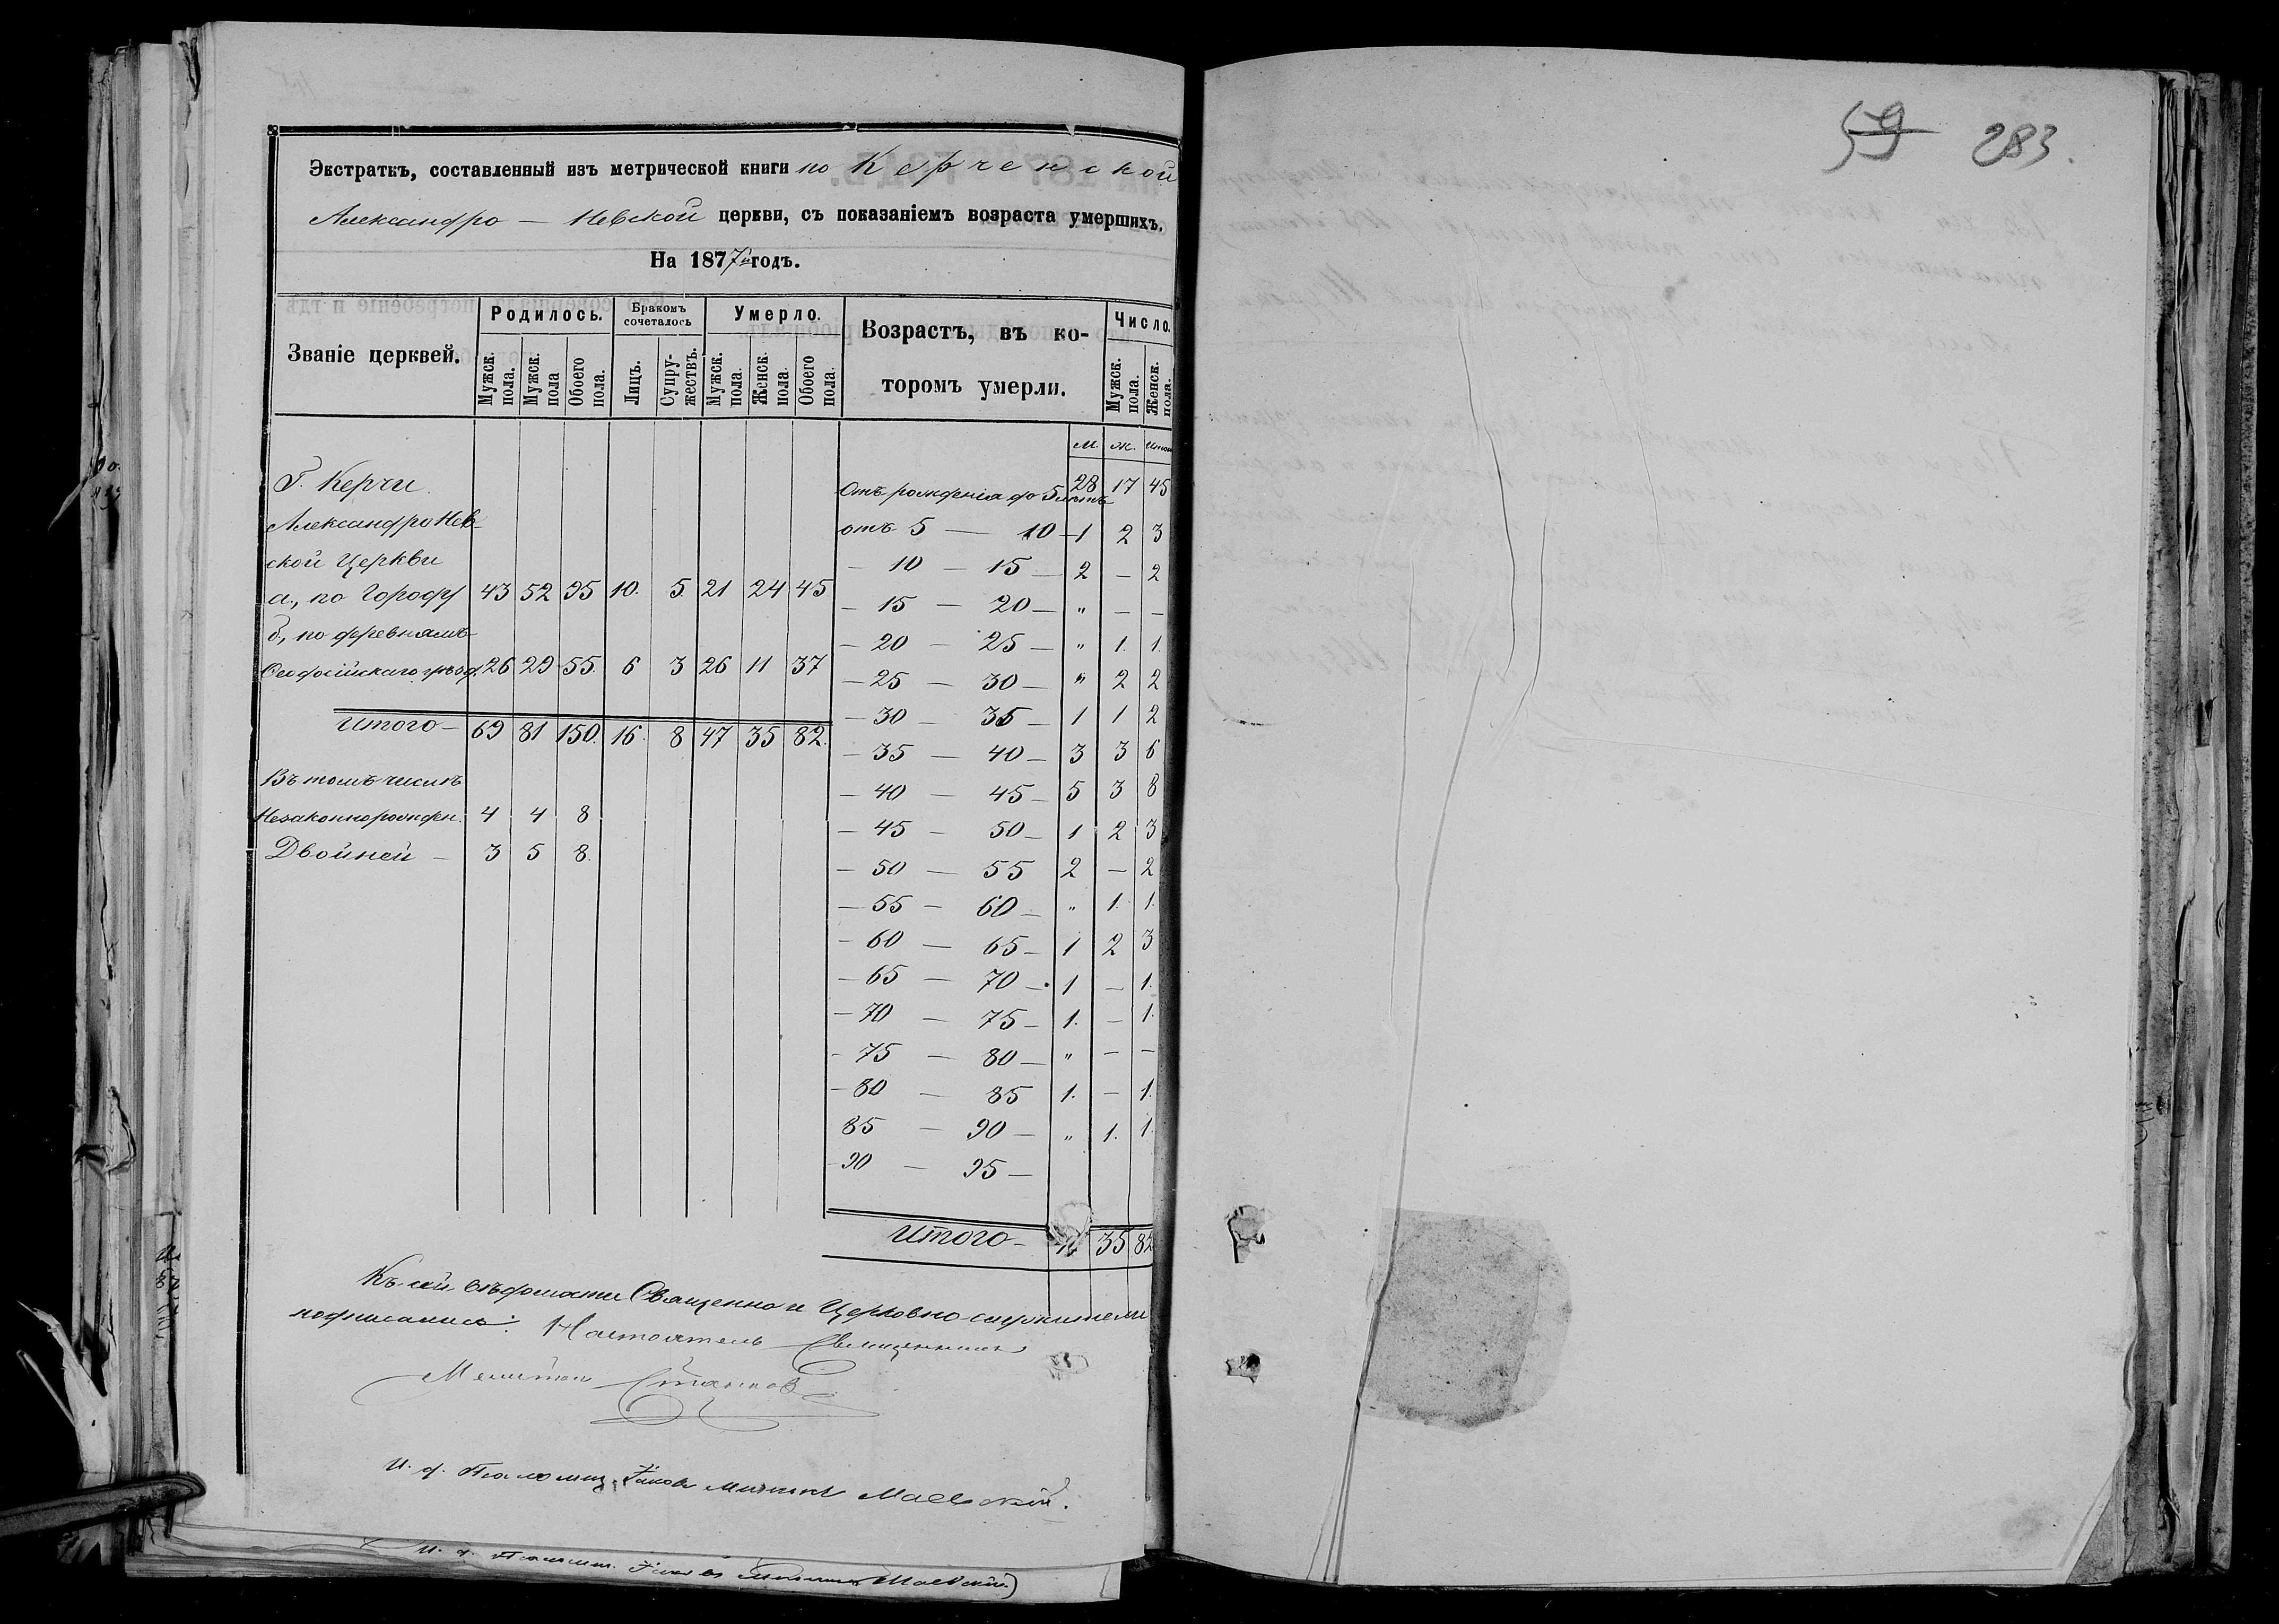 Экстрактъ, составленный изъ метрической книги по Керченской
Александро — Невской церкви, съ показаніемъ возраста умершихъ.
На 1877й годъ.
Званіе церквей. Родилось. Бракомъ сочеталось Умерло. Возрастъ, въ ко-торомъ умерли. Число.
Мужск. пола. Мужск. пола Обоего пола. Лицъ. Супру-жествъ. Мужск. пола. Женск. пола. Обоего пола. Мужск. пола. Женск. пола.
М. Ж. Итого
Г. Керчи
Александро Нев-
ской Церкви
а., по городу 43 52 95 10. 5. 21 24 45
б., по деревнямъ
Феодосійскаго уѣзд. 26 29 55. 6 3 26 11 37
Итого — 69 81 150. 16. 8 47 35 82.
Въ томъ числѣ
Незаконнорожден. 4 4 8
Двойней — 3 5 8.
Отъ рожденія до 5 лѣтъ 28 17 45
отъ 5 — 10 — 1 2 3
— 10 — 15 — 2 — 2
— 15 — 20 — " — —
— 20 — 25 — " 1. 1.
— 25 — 30 — " 2 2
— 30 — 35 — 1 1 2
— 35 — 40 — 3 3 6
— 40 — 45 — 5 3 8
— 45 — 50 — 1 2 3
— 50 — 55 2 — 2
— 55 — 60 — " 1. 1.
— 60 — 65 — 1 2 3
— 65 — 70 — 1 — 1.
— 70 — 75 — 1. — 1.
— 75 — 80 — " — —
— 80 — 85 1. — 1.
85 — 90 — " 1. 1.
— 90 — 95 —
Итого — 35 82
Къ сей вѣдомости Священно и Церковно-служители
подписались: Настоятель Священникъ
Мелитон
И. д. Псаломщ. Іаковъ Маевскій.
И. д. Псаломщ. Іаковъ Маевскій
59 283.